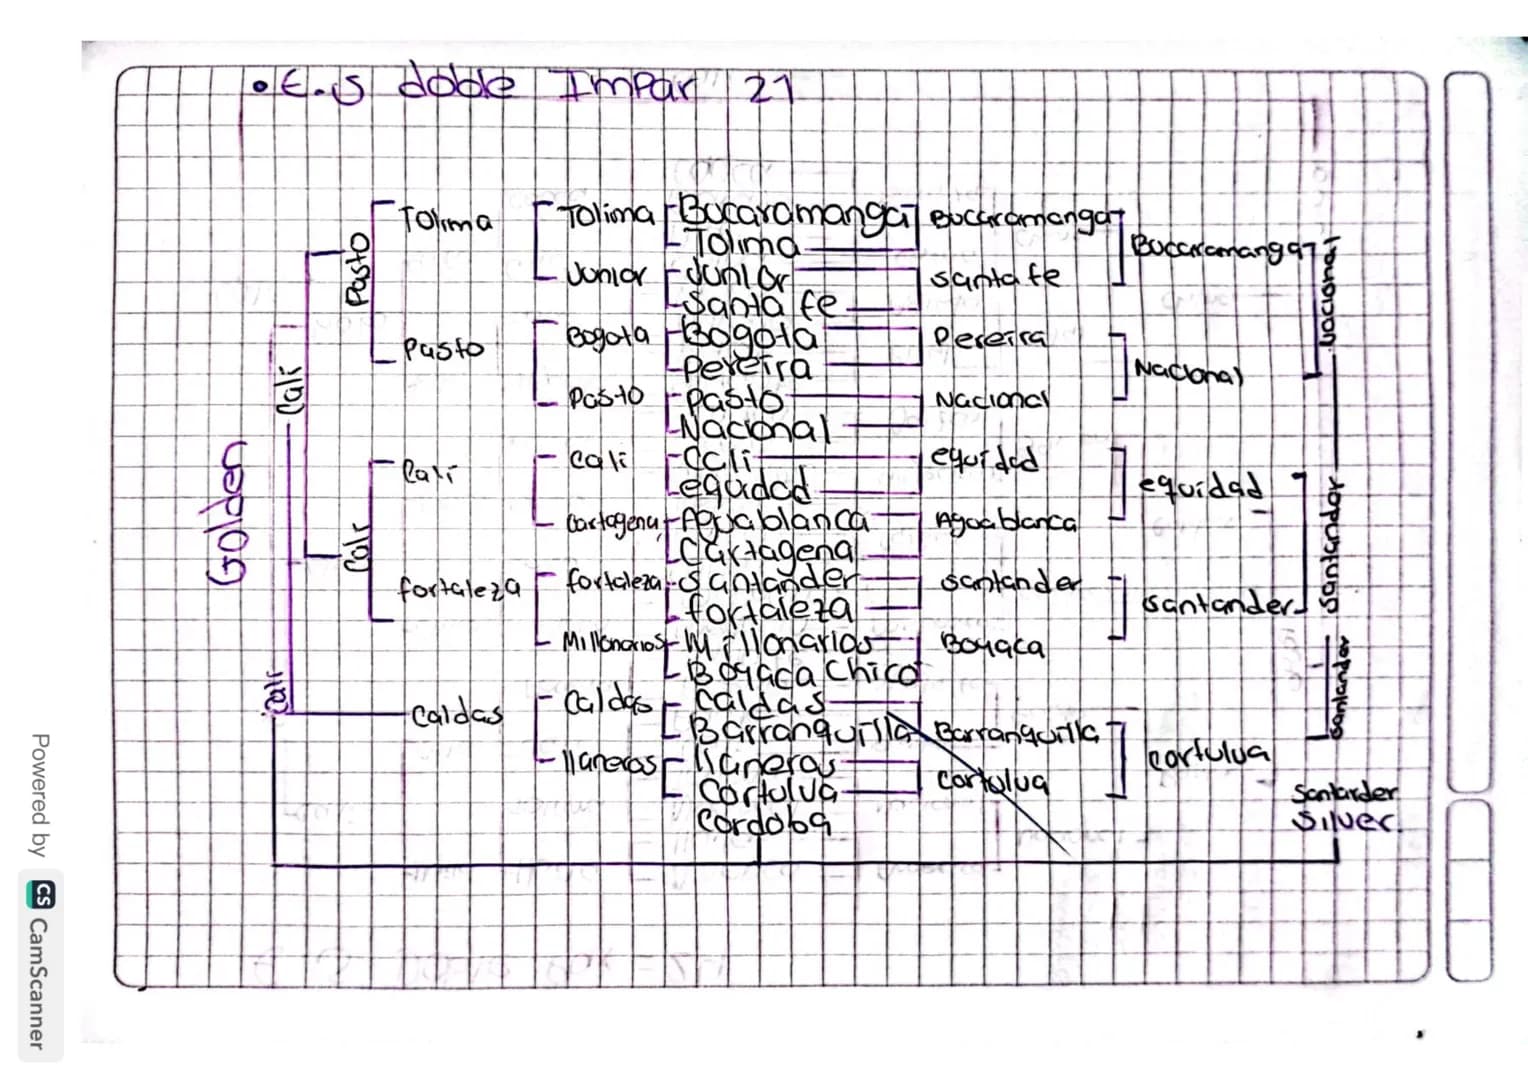 • E.S doble Impar 21
Golden
Cali
Cali
Pasto
Cali
Tolima
Pasto
Cali
fortaleza
Caldas
Tolima
Junior
Bogota
Pasto
Cali
Cartagena
fortaleza
Millonarios
Caldas
llaneros
Bucaramanga
Tolima
Junior
Santa fe
Bogota
Pereira
Pasto
Nacional
Cali
equidad
Aguablanca
Cartagena
Santander
fortaleza
Millonarios
Boyaca Chico
Caldas
Barranquilla
llaneros
Cortulua
Cordoba
Bucaramanga
Santa fe
Pereira
Nacional
equidad
Aguablanca
Santander
Boyaca
Barranquilla
Cortulua
Bucaramanga
Nacional
equidad
Santander
Cortulua
Nacional
Santander
Santander
Santander
Silver.
Powered by CS CamScanner